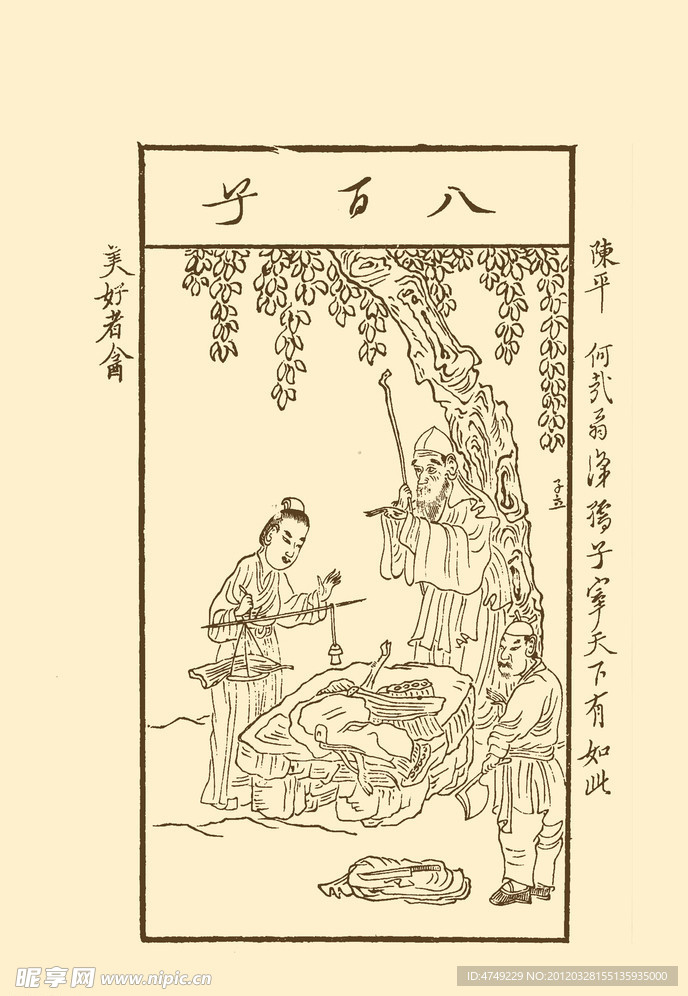 八百子
陳平 何哉翁深孺子宰天下有如此
子立
美好者酓
昵享网 www.nipic.cn
ID:4749229 NO:20120328155135935000